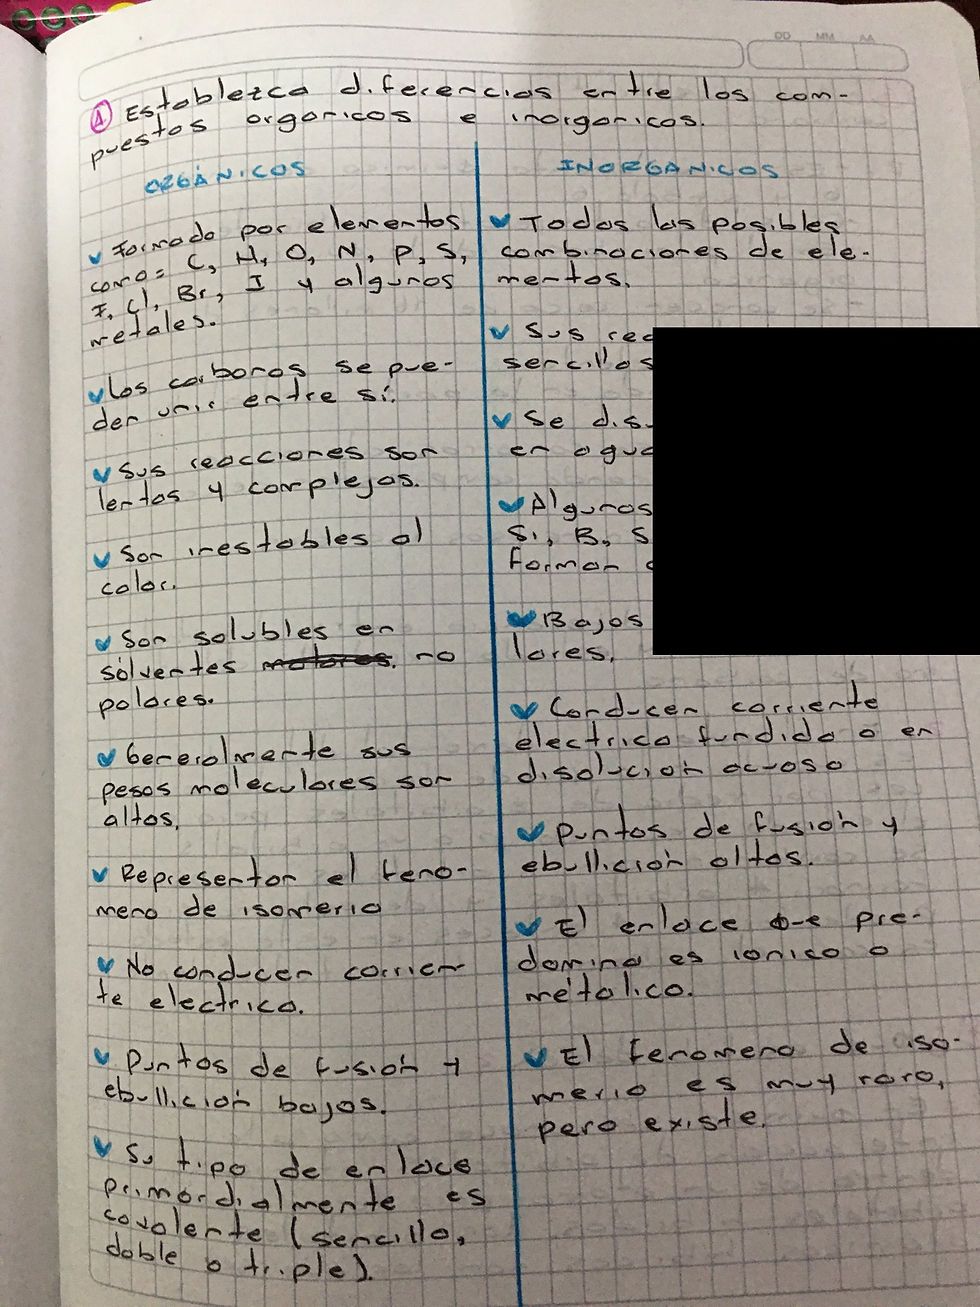 DD MM AA
1 Establezca diferencias entre los com-
puestos orgánicos e inorganicos.
ORGÁNICOS
✓ Formado por elementos
como= C, H, O, N, P, S,
F, Cl, Br, I y algunos
metales.
✓ Los carbonos se pue-
den unir entre sí.
✓ Sus reacciones son
lentas y complejas.
✓ Son inestables al
calor.
✓ Son solubles en
solventes no
polares.
✓ Generalmente sus
pesos moleculares son
altos.
✓ Representan el feno-
meno de isomeria
✓ No conducen corrien-
te electrica.
✓ Puntos de fusión y
ebullición bajos.
✓ Su tipo de enlace
primordialmente es
covalente (sencillo,
doble o triple).
INORGÁNICOS
✓ Todas las posibles
combinaciones de ele-
mentos.
✓ Sus
sencillas
✓ Se
en
✓ Algunos
Si, B, S
forman
✓ Bajos
lores.
✓ Conducen corriente
electrica fundido o en
disolución acuosa
✓ Puntos de fusión y
ebullición altos.
✓ El enlace que pre-
domina es ionico o
métalico.
✓ El fenomeno de iso-
meria es muy raro,
pero existe.